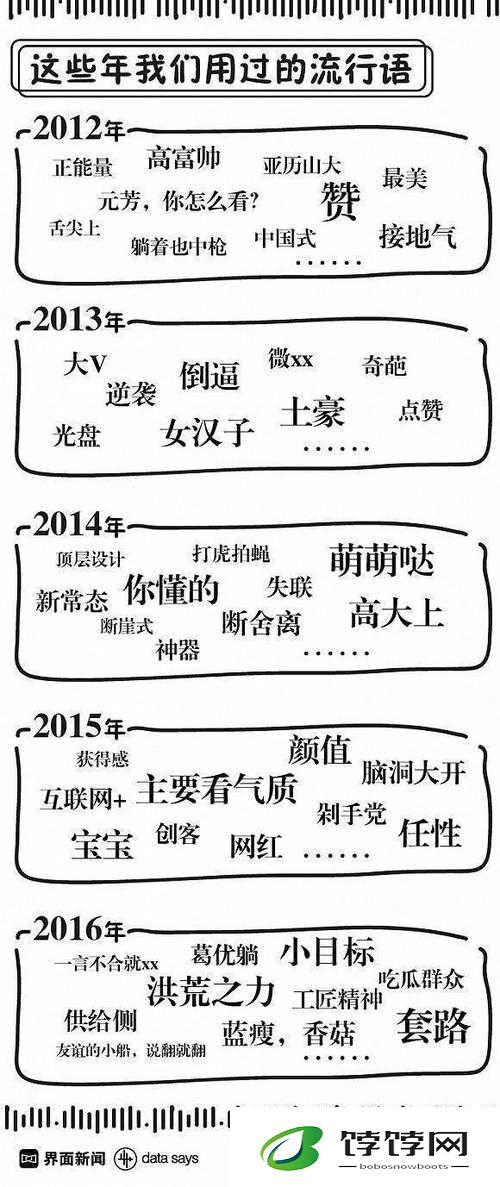 这些年我们用过的流行语
2012年
正能量 高富帅 亚历山大 最美
元芳，你怎么看？ 赞
舌尖上 躺着也中枪 中国式 接地气
······
2013年
大V 逆袭 倒逼 微xx 奇葩
光盘 女汉子 土豪 点赞
······
2014年
顶层设计 打虎拍蝇 萌萌哒
新常态 你懂的 失联
断崖式 断舍离 高大上
神器 ······
2015年
获得感 颜值
互联网+ 主要看气质 脑洞大开
宝宝 创客 网红 剁手党 任性
······
2016年
一言不合就xx 葛优躺 小目标
洪荒之力 工匠精神 吃瓜群众
供给侧 蓝瘦，香菇 套路
友谊的小船，说翻就翻 ······
界面新闻 data says
饽饽网
bobosnowboots